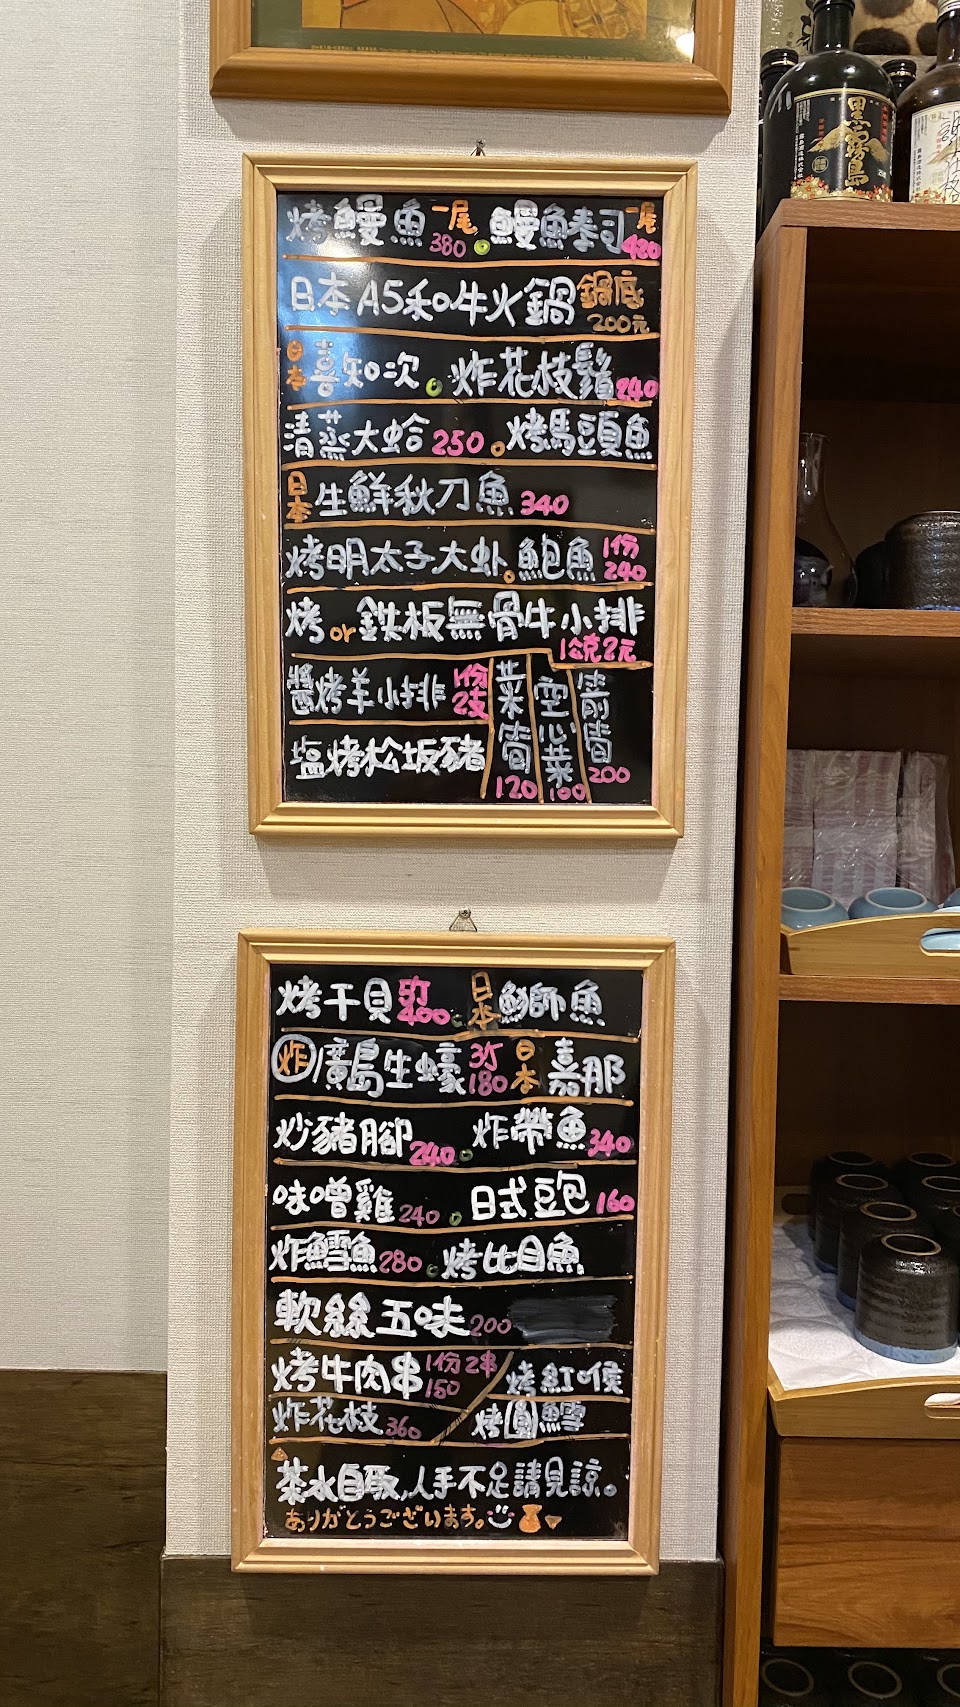 烤鰻魚一尾380。鰻魚壽司一尾420
日本A5和牛火鍋鍋底200元
日本喜知次。炸花枝鬚240
清蒸大蛤250。烤馬頭魚
日本生鮮秋刀魚340
烤明太子大虾。鮑魚1份240
烤or鉄板無骨牛小排
1公克2元
醬烤羊小排1份2支
塩烤松坂豬
菜脯120
空心菜100
箭筍200
烤干貝5T400。日本鰤魚
炸廣島生蠔3T180日本嘉那
炒豬腳240。炸帶魚340
味噌雞240。日式豆包160
炸鱈魚280。烤比目魚
軟絲五味200
烤牛肉串1份2串150
烤紅喉
炸花枝360
烤圓鱈
茶水自取,人手不足請見諒。
ありがとうございます。
黒霧島